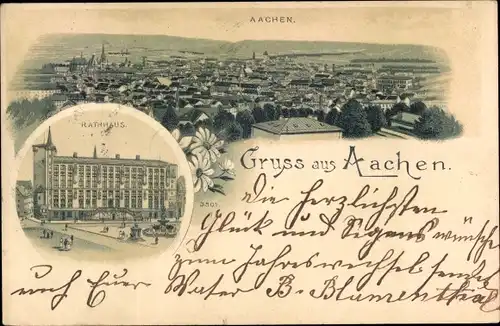 AACHEN.
RATHHAUS.
3501.
Gruss aus Aachen.
Die herzlichsten
Glück und Segenswünsche
zum Jahreswechsel sendet
euch Euer Vater B. Blumenthal